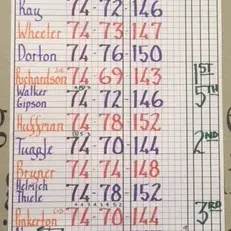 Kay 74-72-146
Wheeler 74-73-147
Dorton 74-76-150
Richardson 74-69-143 1ST
Walker Gipson 74-72-146 5TH
Huffman 74-78-152
Tuggle 74-70-144 2ND
Bruner 74-74-148
Heinrich Thiele 74-78-152
Pinkerton 74-70-144 3RD